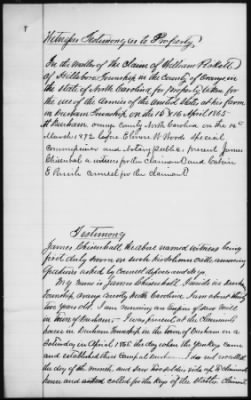 Witness Testimony as to Property
In the Matter of the Claim of William Pickett
of Hillsboro Township in the County of Orange in
the State of North Carolina for property taken for
the use of the Armies of the United States at his farm
in Durham Township on the 15 & 16 April 1865
At Durham, Orange County North Carolina on the
March 1872 before Edwin W Woods Special
Commissioner and Notary Public; present James
Chisenhall a witness for the claimant and
E Parish counsel for claimant
Testimony
James Chisenhall the above named witness being
first duly sworn on such his solemn oath, answering
questions asked by counsel deposes and says:
My name is James Chisenhall. I reside in
Township, Orange County North Carolina. I am about thirty
two years old. I am running an Engine of Saw Mill
in Town of Durham. I was present at the Claimants
house in Durham Township in the town of Durham on a
Saturday in April 1865 the day when the yankey came
and established their Camp at Durham. I do not recollect
the day of the month, and saw two soldiers ride up to Claimants
house and asked called for the keys of the stables. Claimant